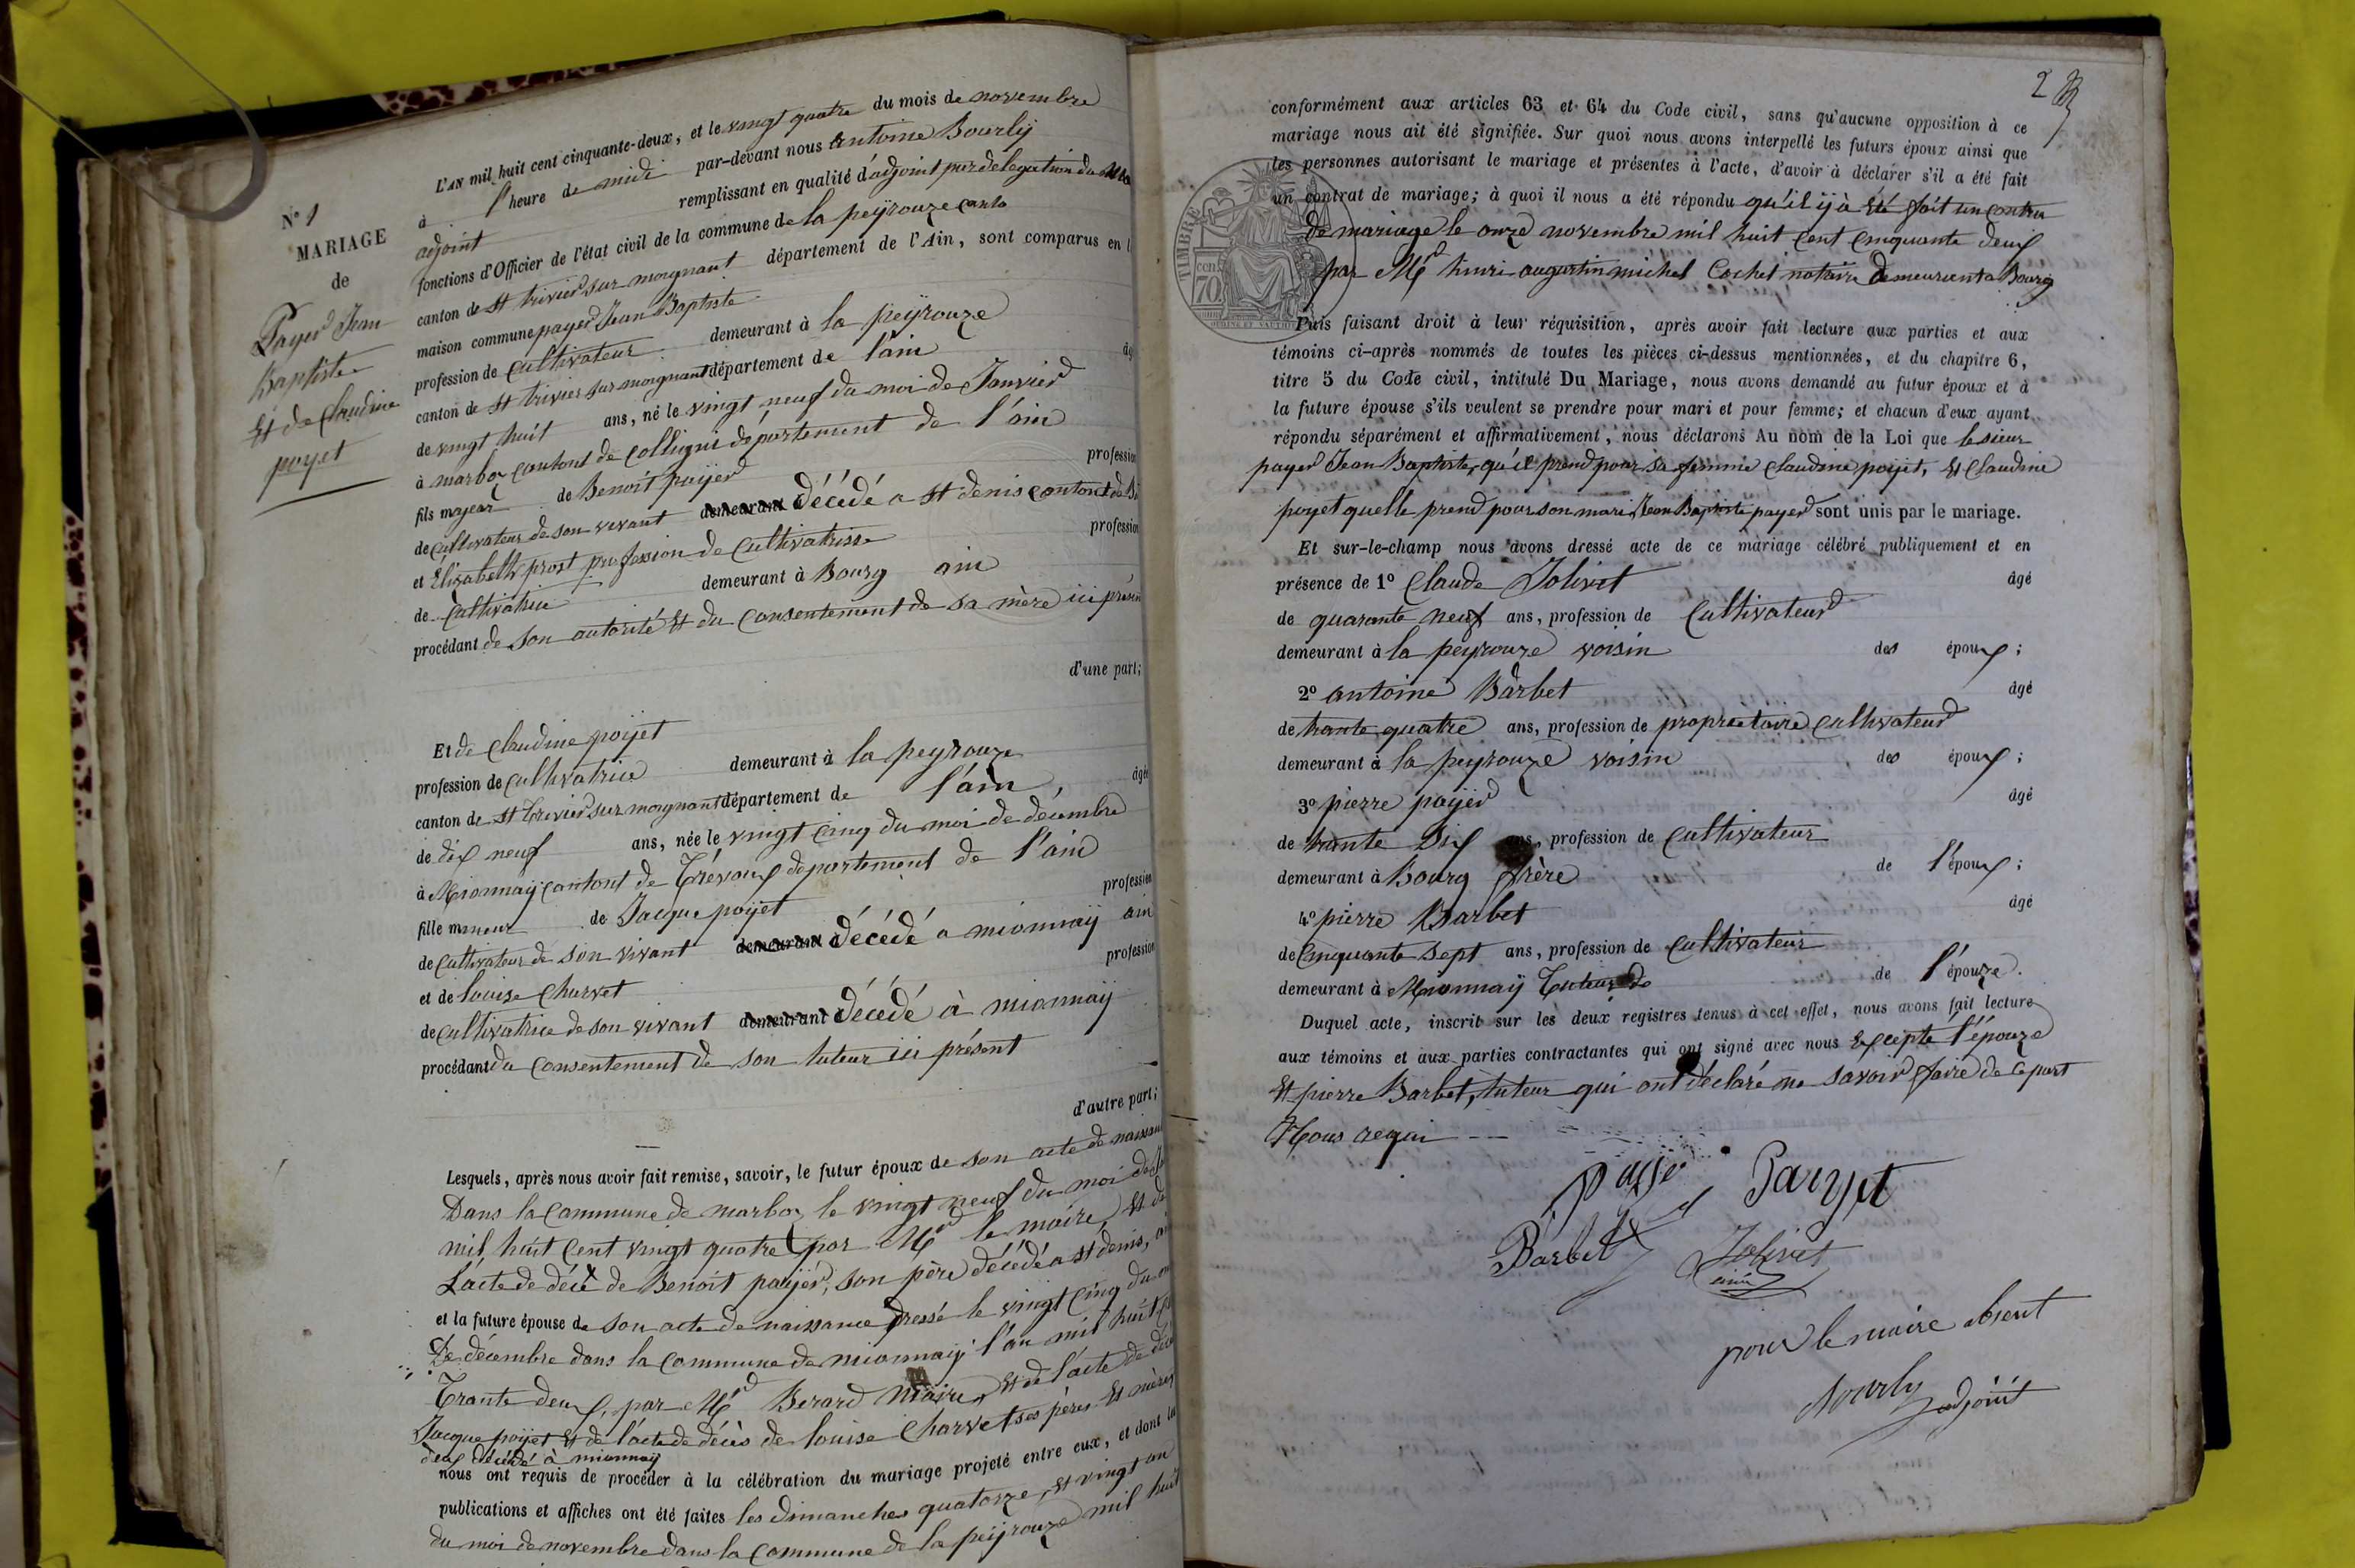 N° 1
MARIAGE
de
Payer Jean
Baptiste
Et de Claudine
poyet
L'AN mil huit cent cinquante-deux, et le vingt quatre du mois de novembre
à l'heure de midi par-devant nous antoine Bourlÿ
adjoint remplissant en qualité d'adjoint par delegation du
fonctions d'Officier de l'état civil de la commune de la peÿrouze
canton de st trivier sur mognant département de l'Ain, sont comparus en
maison commune payer Jean Baptiste
profession de Cultivateur demeurant à la peÿrouze
canton de st trivier sur mognant département de l'ain
de vingt huit ans, né le vingt neuf du moi de Janvier
à marboz contont de Colligni département de l'ain
fils majeur de Benoit paÿer profession
de Cultivateur de son vivant demeurant décédé a st denis contont de
et Élisabeth prost profession de Cultivatrisse profession
de Cultivatrice demeurant à Bourg ain
procédant de son autorité Et du Consentement de sa mère ici
d'une part;
Et de Claudine poÿet
profession de Cultivatrice demeurant à la peyrouze
canton de st trivier sur mognant département de l'ain âgée
de dix neuf ans, née le vingt Cinq du moi de décembre
à Mionnaÿ contont de Trévoux département de l'ain
fille mineur de Jacque poÿet profession
de Cultivateur de son vivant demeurant à décédé a mionnaÿ ain
et de louise Charvet profession
de Cultivatrice de son vivant demeurant décédé à mionnaÿ
procédant du Consentement de son tuteur ici présent
d'autre part;
Lesquels, après nous avoir fait remise, savoir, le futur époux de son acte de
Dans la Commune de marboz le vingt neuf du moi de
mil huit Cent vingt quatre par Mr le maire, Et de
L'acte de décè de Benoit payér, son père décédé a st denis,
et la future épouse de son acte de naissance dressé le vingt Cinq du
De décembre dans la Commune de mionnaÿ l'an mil huit
Trante deux, par Mr Berard maire, Et de l'acte de
Jacque poÿet Et de l'acte de décès de louise Charvet ses pères Et mères
deux décédé à mionnay
nous ont requis de procéder à la célébration du mariage projeté entre eux, et dont
publications et affiches ont été faites les dimanches quatorze, Et vingt un
du moi de novembre dans la Commune de la peÿrouze mil huit
2
conformément aux articles 63 et 64 du Code civil, sans qu'aucune opposition à ce
mariage nous ait été signifiée. Sur quoi nous avons interpellé les futurs époux ainsi que
les personnes autorisant le mariage et présentes à l'acte, d'avoir à déclarer s'il a été fait
un contrat de mariage; à quoi il nous a été répondu qu'il ÿ à été fait un contra
de mariage le onze novembre mil huit Cent Cinquante deux
par Mr henri augustin michel Cochet notaire demeurent a Bourg
TIMBRE
70
Puis faisant droit à leur réquisition, après avoir fait lecture aux parties et aux
témoins ci-après nommés de toutes les pièces ci-dessus mentionnées, et du chapitre 6,
titre 5 du Code civil, intitulé Du Mariage, nous avons demandé au futur époux et à
la future épouse s'ils veulent se prendre pour mari et pour femme; et chacun d'eux ayant
répondu séparément et affirmativement, nous déclarons Au nom de la Loi que le sieur
payer Jean Baptiste, qu'il prend pour sa femme Claudine poÿet, Et Claudine
poyet quelle prend pour son mari Jean Baptiste payer sont unis par le mariage.
Et sur-le-champ nous avons dressé acte de ce mariage célébré publiquement et en
présence de 1° Claude Jolivet âgé
de quarante neuf ans, profession de Cultivateur
demeurant à la peyrouze voisin des époux;
2° antoine Barbet âgé
de trante quatre ans, profession de proprietaire cultivateur
demeurant à la peyrouze voisin des époux;
3° pierre payer âgé
de trante six ans, profession de Cultivateur
demeurant à Bourg frère de l'époux;
4° pierre Barbet âgé
de Cinquante sept ans, profession de Cultivateur
demeurant à Mionnaÿ Tuteur de de l'épouze.
Duquel acte, inscrit sur les deux registres tenus à cet effet, nous avons fait lecture
aux témoins et aux parties contractantes qui ont signé avec nous Excepte l'épouze
Et pierre Barbet, tuteur qui ont déclaré ne savoir faire de Ce part
Nous requi
Payer
Barbet Jolivet
ainé
pour le maire absent
Bourly
adjoint